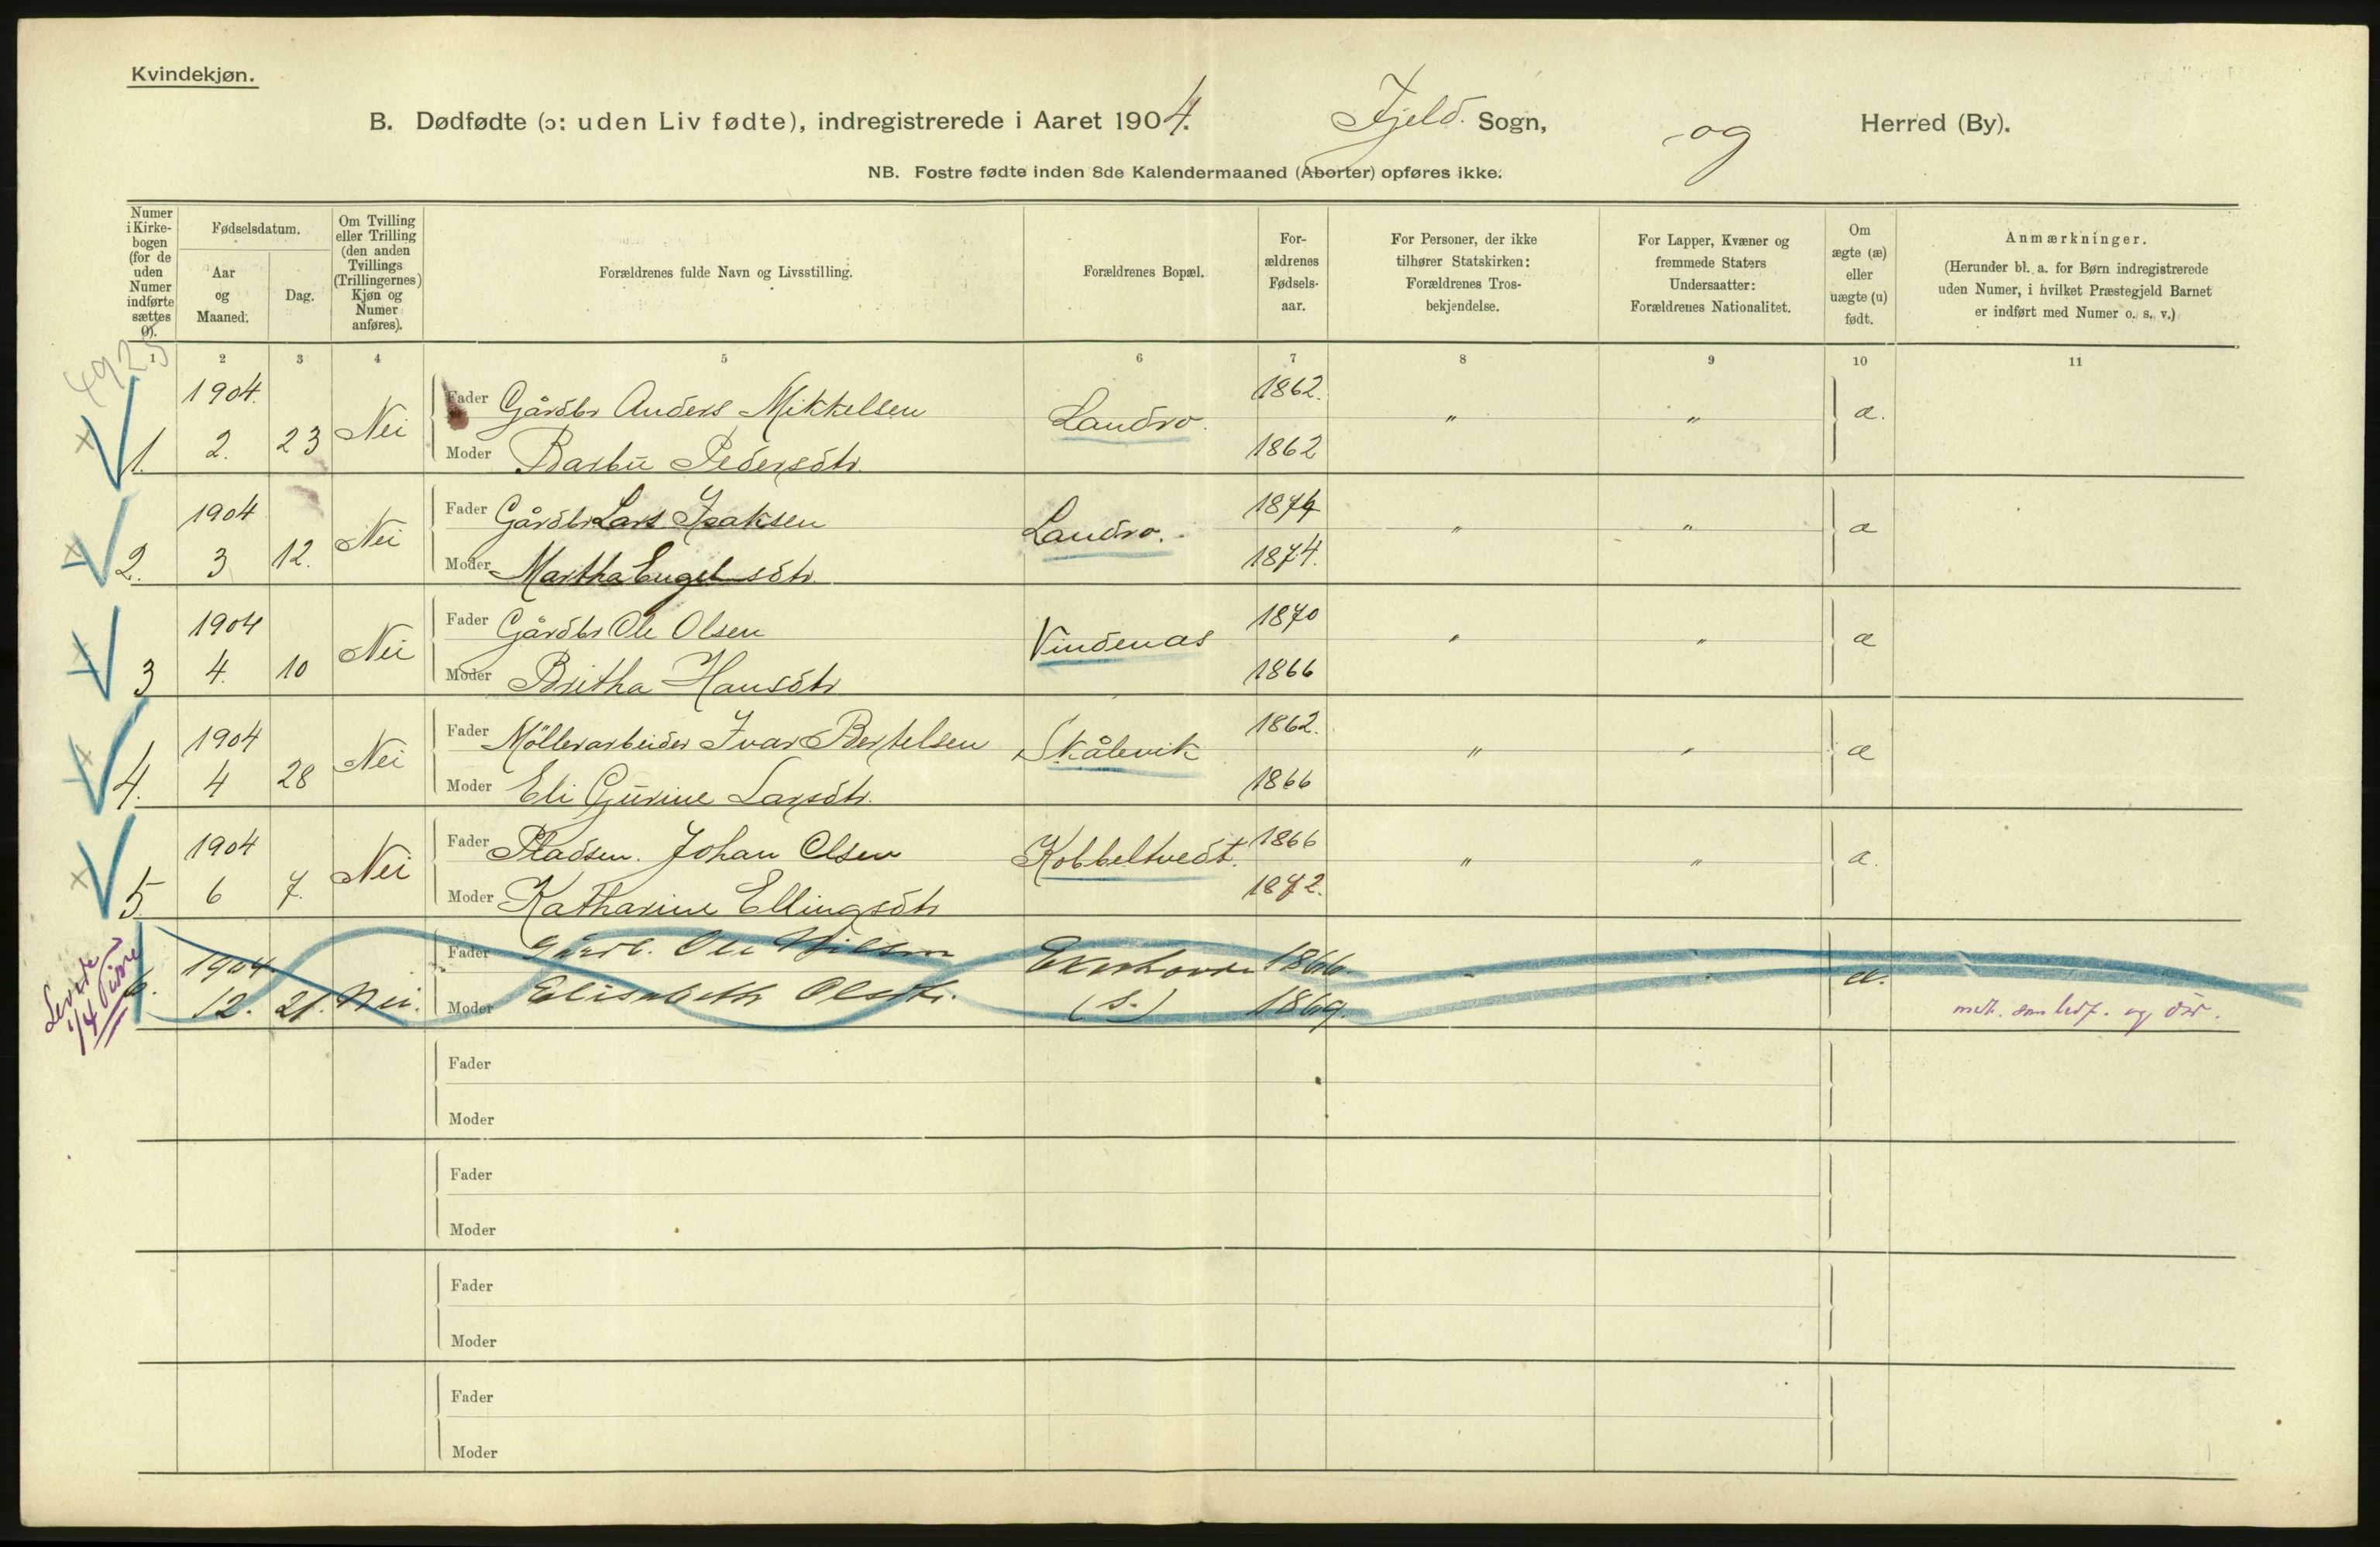 Kvindekjøn.
B. Dødfødte (ɔ: uden Liv fødte), indregistrerede i Aaret 1904. Fjeld Sogn, og Herred (By).
NB. Fostre fødte inden 8de Kalendermaaned (Aborter) opføres ikke.
Numer i Kirkebogen (for de uden Numer indførte sættes 0).
Fødselsdatum.
Aar og Maaned.
Dag.
Om Tvilling eller Trilling (den anden Tvillings (Trillingernes) Kjøn og Numer anføres).
Forældrenes fulde Navn og Livsstilling.
Forældrenes Bopæl.
Forældrenes Fødselsaar.
For Personer, der ikke tilhører Statskirken: Forældrenes Trosbekjendelse.
For Lapper, Kvæner og fremmede Staters Undersaatter: Forældrenes Nationalitet.
Om ægte (æ) eller uægte (u) født.
Anmærkninger.
(Herunder bl. a. for Børn indregistrerede uden Numer, i hvilket Præstegjeld Barnet er indført med Numer o. s. v.)
1 2 3 4 5 6 7 8 9 10 11
4925
1904. Fader Gårdbr Anders Mikkelsen 1862.
1. 2. 23 Nei Landro. " " æ.
Moder Barbu Pedersdtr. 1862
1904 Fader Gårdbr Lars Isaksen 1874
2. 3 12. Nei Landro. " " æ
Moder Martha Engelsdtr. 1874.
1904 Fader Gårdbr Ole Olsen 1870
3 4. 10 Nei Vindenæs " " æ
Moder Britha Hansdtr 1866
1904 Fader Möllerarbeider Ivar Bertelsen 1862.
4. 4 28 Nei Skålevik " " æ
Moder Eli Gurine Larsdtr. 1866
1904 Fader Pladsm. Johan Olsen 1866
5 6 7. Nei Kobbeltvedt. " " æ.
Moder Katharine Ellingsdtr 1872.
Levede 1/4 Time
1904 Fader Gårdb. Ole Nilsen Ekerhovde 1866.
6. 12. 21. Nei. æ.
Moder Elisabeth Olsdtr. (S.) 1869.
medt. som levf. og död.
Fader
Moder
Fader
Moder
Fader
Moder
Fader
Moder